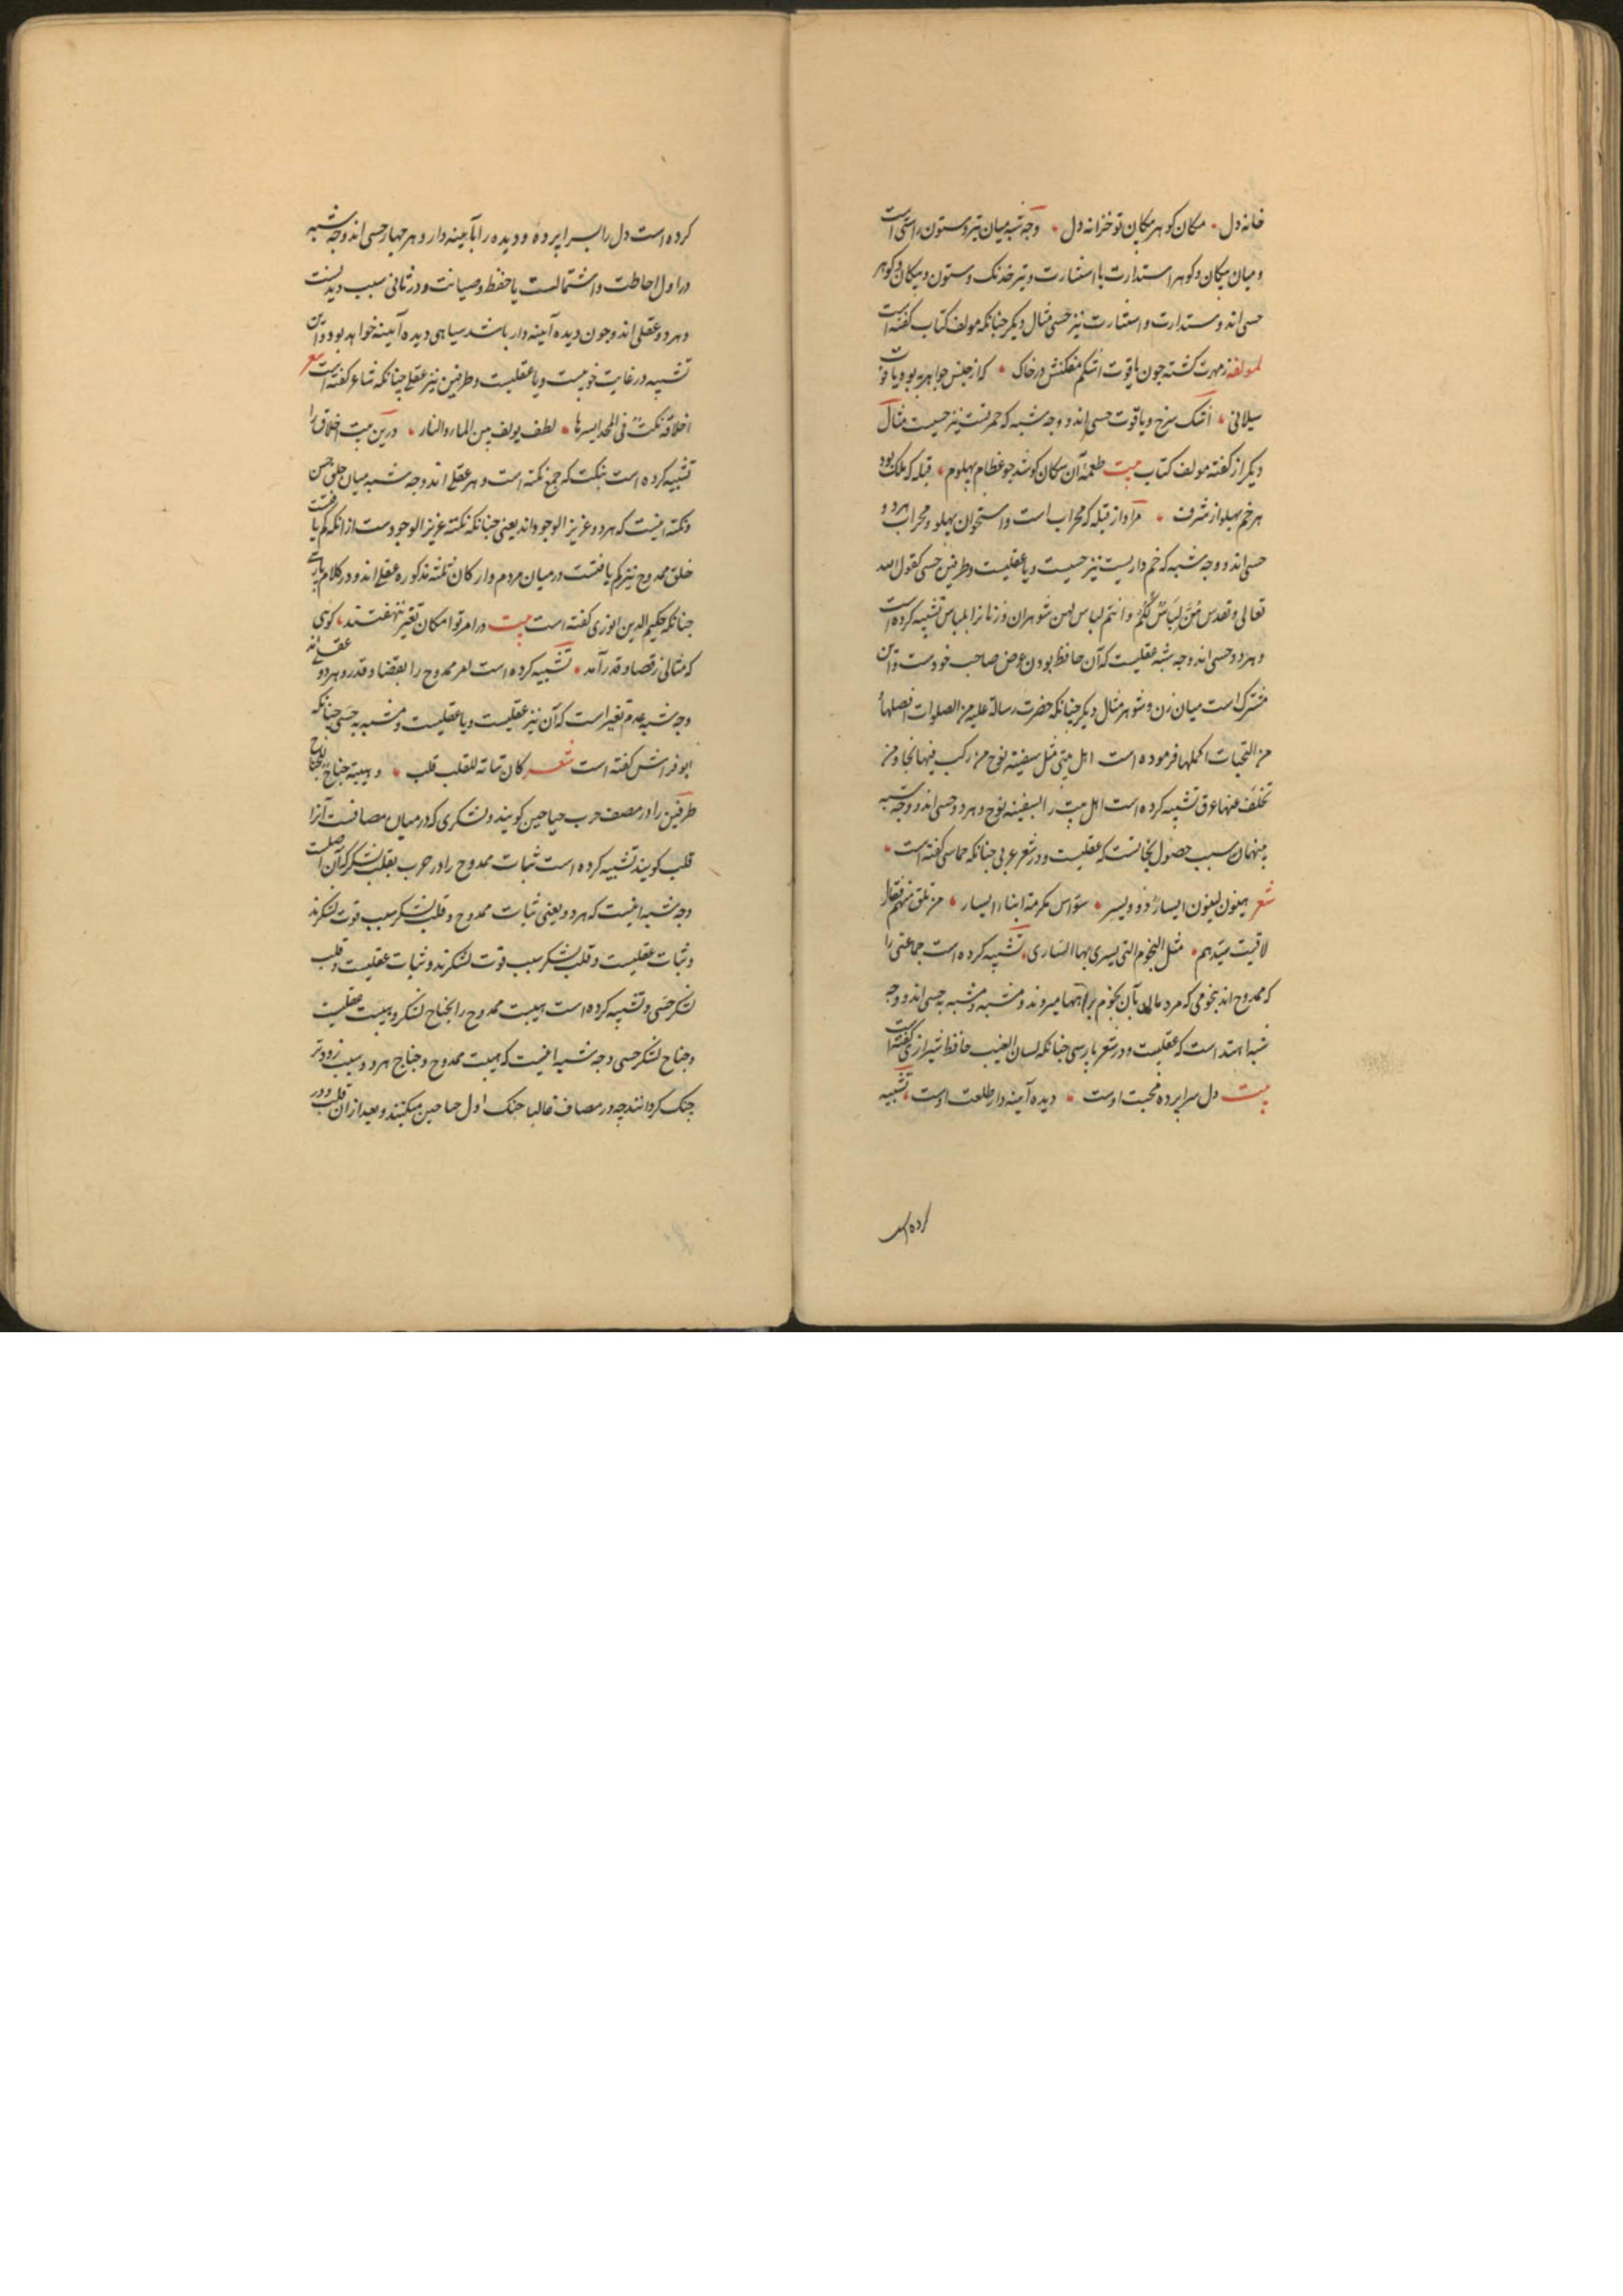 خانه دل • مکان کوهر مکان تو خزانه دل • وجه شبه میان تیر و ستون راستی است
و میان پیکان و کوهر استدارت با استنارت و تیر خدنک و ستون و پیکان و کوهر
حسی اند و استدارت و استنارت نیز حسی مثال دیکر جنانکه مولف کتاب کفته است
لمولفه ز مهرت کشته جون یاقوت اشکم مفکنش در خاک • که از جنس جواهر به بود یاقوت
سیلانی • اشک سرخ و یاقوت حسی اند و وجه شبه که حمرتست نیز حسیست مثال
دیکر از کفته مولف کتاب بیت طعمهٔ آن سکان کو شد جو عظام پهلوم • قبله که ملک بود
هر خم پهلو از شرف • مراد از قبله که محرابست و استخوان پهلو و محراب هر دو
حسی اند و وجه شبه که خم داریست نیز حسیست و یا عقلیست و طرفین حسی کقول الله
تعالی و تقدس هُنَّ لِبَاسٌ لَکُمْ وَ انتم لباس لهن شوهران و زنانرا بلباس تشبیه کرده است
و هر دو حسی اند وجه شبه عقلیست که آن حافظ بودن عرض صاحب خودست و این
مشترک است میان زن و شوهر مثال دیکر جنانکه حضرت رسالة علیه من الصلوات افضلها
من التحیات اکملها فرموده است اهل بیتی مثل سفینة نوح من رکب فیها نجا و من
تخلف عنها غرق تشبیه کرده است اهل بیت را بسفینه نوح و هر دو حسی اند و وجه شبه
بینهما سبب حصول نجاتست که عقلیست و در شعر عربی جنانکه حماسی کفته است •
شعر هینون لینون ایسار ذوو یسر • سواس مکرمة ابناء ایسار • من تلق منهم فقل
لاقیت سیدهم • مثل النجوم التی یسری بها الساری • تشبیه کرده است جماعتی را
که ممدوح اند بنجومی که مردمان بآن نجوم براهها میروند و مشبه و مشبه به حسی اند و وجه
شبه اهتدا است که عقلیست و در شعر پارسی جنانکه لسان الغیب حافظ شیرازی کفته است
بیت دل سراپرده محبت اوست • دیده آینه دار طلعت اوست • تشبیه
کرده است
کرده است دل را بسراپرده و دیده را بآیینه دار و هر چهار حسی اند وجه شبه
در اول احاطت و اشتمالست یا حفظ و صیانت و در ثانی سبب دیدنست
و هر دو عقلی اند و جون دیده آینه دار باشد سیاهی دیده آینه خواهد بود و این
تشبیه در غایت خوبیست و یا عقلیست و طرفین نیز عقلی جنانکه شاعر کفته است شعر
اخلاقه نکت فی المجد ایسرها • لطف یولف بین الماء و النار • درین بیت اخلاق را
تشبیه کرده است بنکت که جمع نکته است و هر عقلی اند وجه شبه میان خلق حسن
و نکته اینست که هر دو عزیز الوجود اند یعنی جنانکه نکته عزیز الوجودست از انکه کم یافتست
خلق ممدوح نیز کم یافتست در میان مردم و ارکان ثلثه مذکوره عقلی اند و در کلام پارسی
جنانکه حکیم الدین انوری کفته است بیت در امر تو امکان تغیر ننهفتند • کویی
که مثالی ز قضا و قدر آمد • تشبیه کرده است امر ممدوح را بقضا و قدر و هر دو عقلی اند
وجه شبه عدم تغیر است که آن نیز عقلیست و یا عقلیست و مشبه به حسی جنانکه
ابو فراش کفته است شعر کان ثباته للقلب قلب • و هیبته جناح للجناح
طرفین را در مصف حرب جناحین کویند و لشکری که در میان مصافست آنرا
قلب کویند تشبیه کرده است ثبات ممدوح را در حرب بقلب لشکر که آن اصلست
وجه شبه اینست که هر دو یعنی ثبات ممدوح و قلب لشکر سبب قوت لشکرند
و ثبات عقلیست و قلب لشکر سبب قوت لشکرند و ثبات عقلیست و قلب
لشکر حسی و تشبیه کرده است هیبت ممدوح را بجناح لشکر و هیبت عقلیست
و جناح لشکر حسی وجه شبه اینست که هیبت ممدوح و جناح هر دو سبب زودتر
جنک کردانند چه در مصاف غالبا جنک اول جناحین میکنند و بعد از ان قلب و در